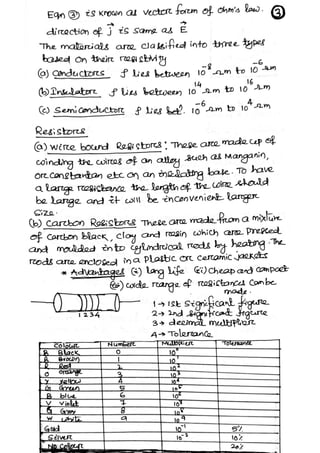 Eqn ③ is known as vector form of Ohm's law. ③
direction of j is same as E
The materials are classified into three types
based on their resistivity
(a) Conductors ρ lies between 10⁻⁸ Ωm to 10⁻⁶ Ωm
(b) Insulator ρ lies between 10¹⁴ Ωm to 10¹⁶ Ωm
(c) Semiconductor ρ lies betⁿ. 10⁻⁶ Ωm to 10⁴ Ωm
Resistors
(a) wire bound Resistors: These are made up of
winding the wires of an alloy such as Manganin,
or constantan etc on an insulating base. To have
a large resistance the length of the wire should
be large and it will be inconvenient larger
size.
(b) Carbon Resistors These are made from a mixture
of Carbon black, clay and resin which are Pressed
and moulded into cylindrical rods by heating. The
rods are enclosed in a Plastic or ceramic jackets
* Advantages (i) long life (ii) cheap and compact
wide range of resistances can be
made.
1 → 1st Significant figure
2 → 2nd Significant figure
3 → decimal multiplier
4 → Tolerance
1 2 3 4
Colour Number Multiplier Tolerance
B Black 0 10⁰
B Brown 1 10¹
R Red 2 10²
O orange 3 10³
Y yellow 4 10⁴
G Green 5 10⁵
B blue 6 10⁶
V violet 7 10⁷
G Gray 8 10⁸
W white 9 10⁹
Gold 10⁻¹ 5%
Silver 10⁻² 10%
No Colour 20%